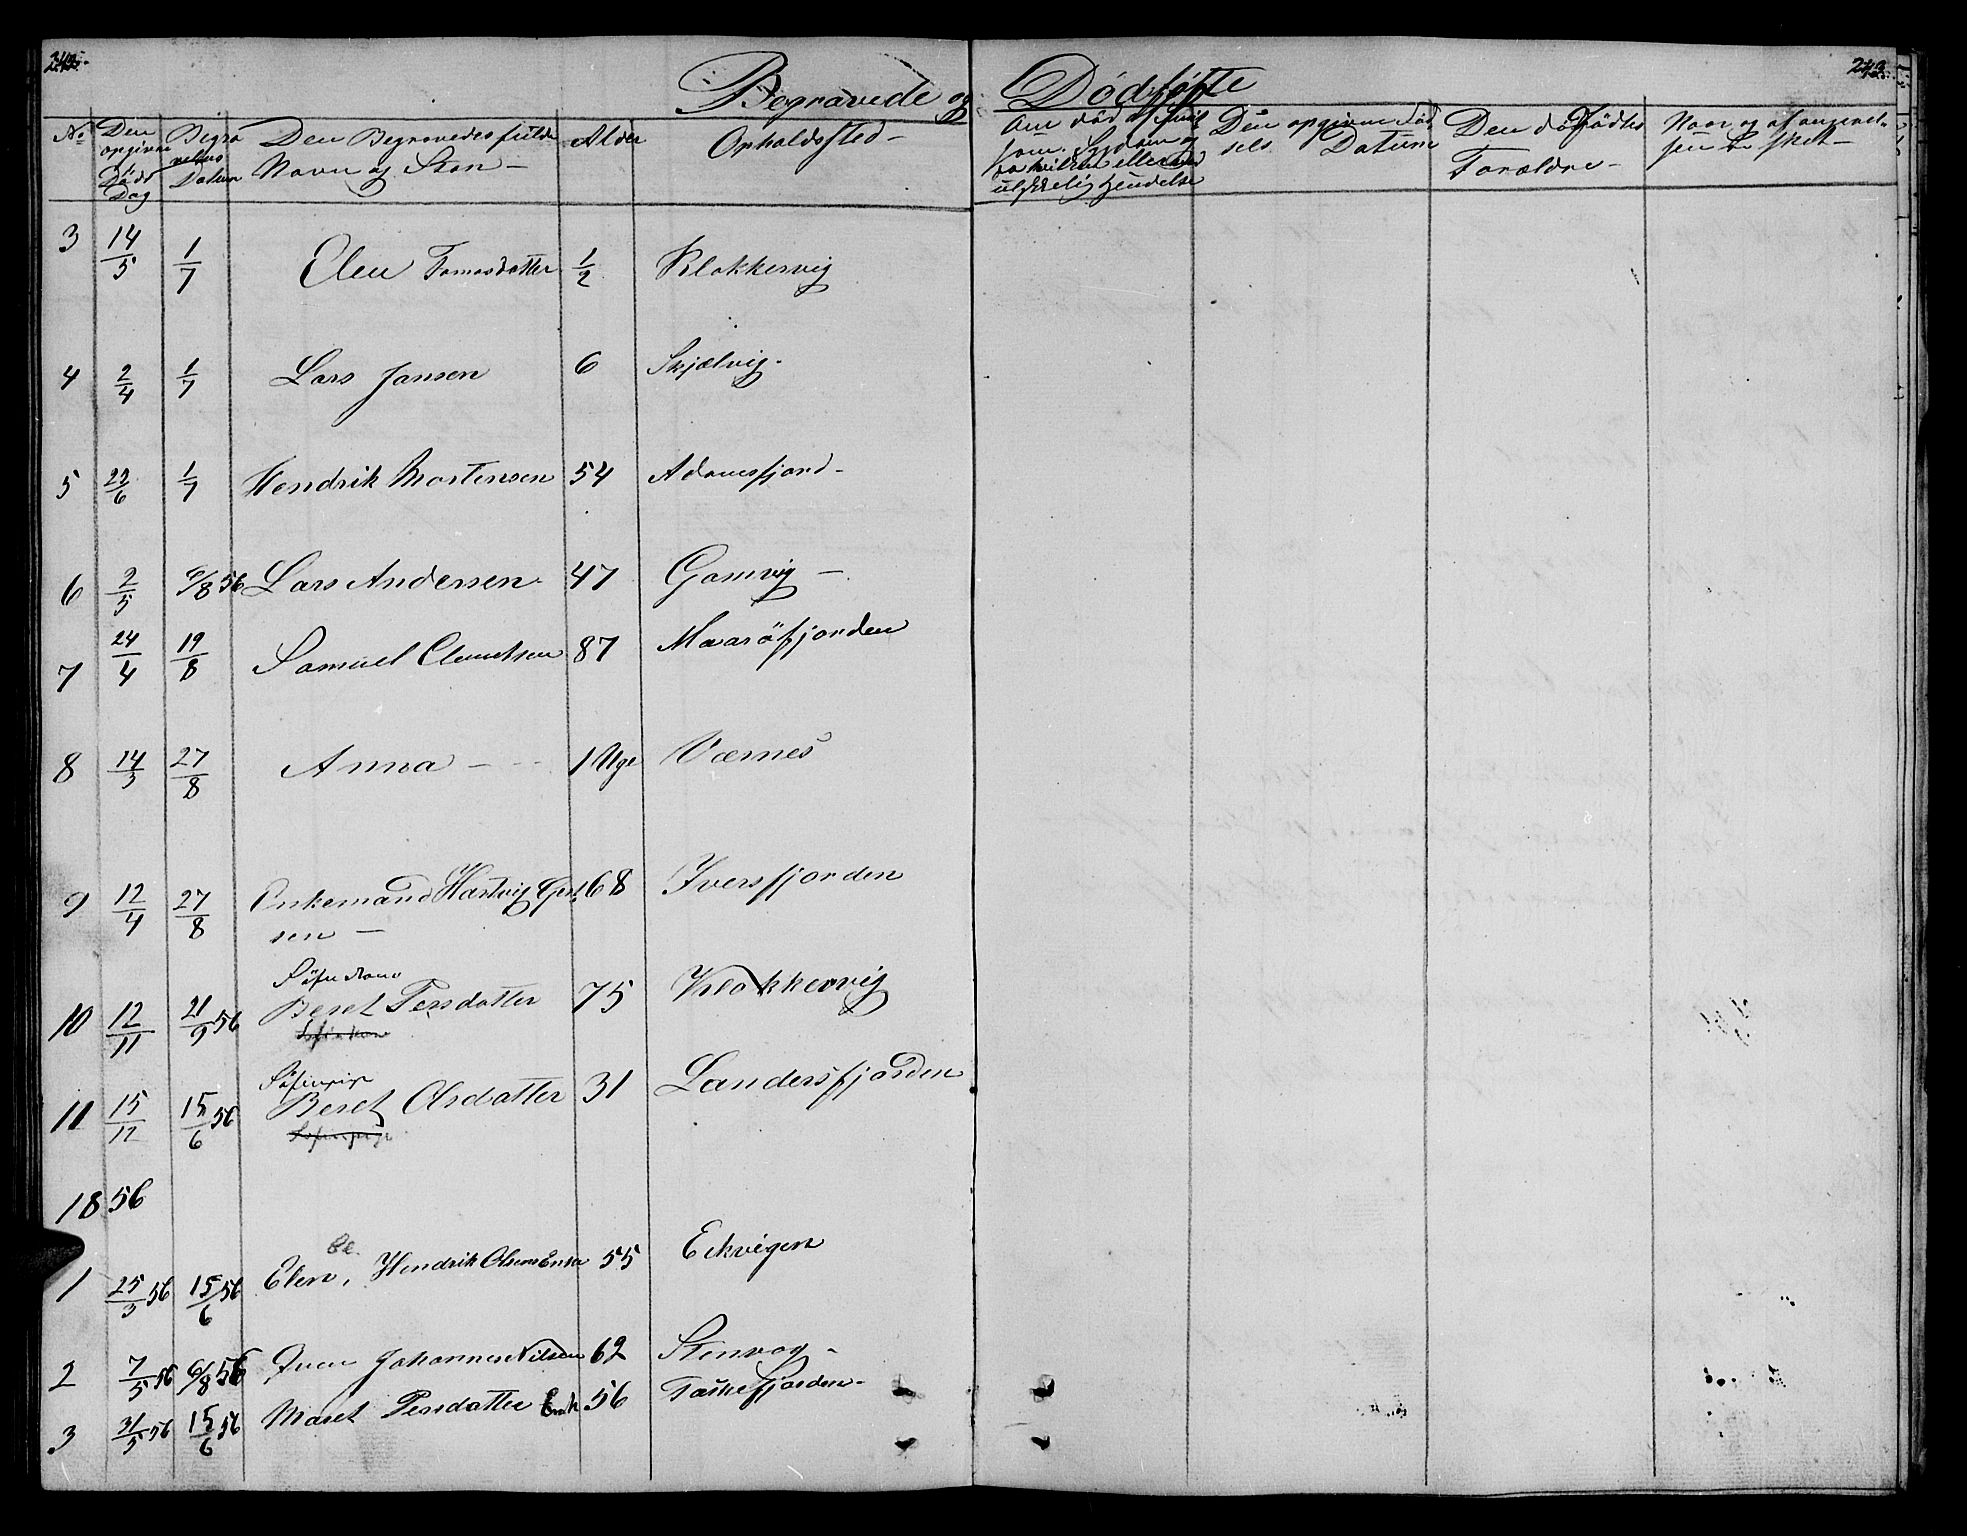 242. 243.
Begravede og Dødføfte
No Den opgivne Døds Dag Begravelses Datum Den Begravedes fulde Navn og Stan - Alder Opholdssted - Om død af Sygdom og hvilken eller ulykkelig Hendelse Den opgivne Fødsels Datum Den dødfødtes Forældre - Naar og
3 14/5 1/7 Elen Tomasdatter 1/2 Klokkervig
4 2/4 1/7 Lars Jansen 6 Skjælvig.
5 22/6 1/7 Hendrik Mortensen 54 Adamsfjord -
6 2/5 6/8 56 Lars Andersen 47 Gamvig -
7 24/4 19/8 Samuel Clemetsen 87 Maaröfjorden
8 14/3 27/8 Anna - - - 1 Uge Værnes
9 12/4 27/8 Enkemand Hartvig
sen - 68 Iversfjorden
10 12/11 21/9 56 Beret Persdatter 75 Klokkervig
11 15/12 15/6 56 Beret Olsdatter 31 Landersfjorden
1856
1 25/3 56 15/6 56 Elen, Hendrik Olsens Enke 55 Eekvigen
2 7/5 56 6/8 56 Johannes Nilsen 62 Stenvog -
3 31/5 56 15/6 56 Maret Persdatter Enk 56 Taskefjorden -